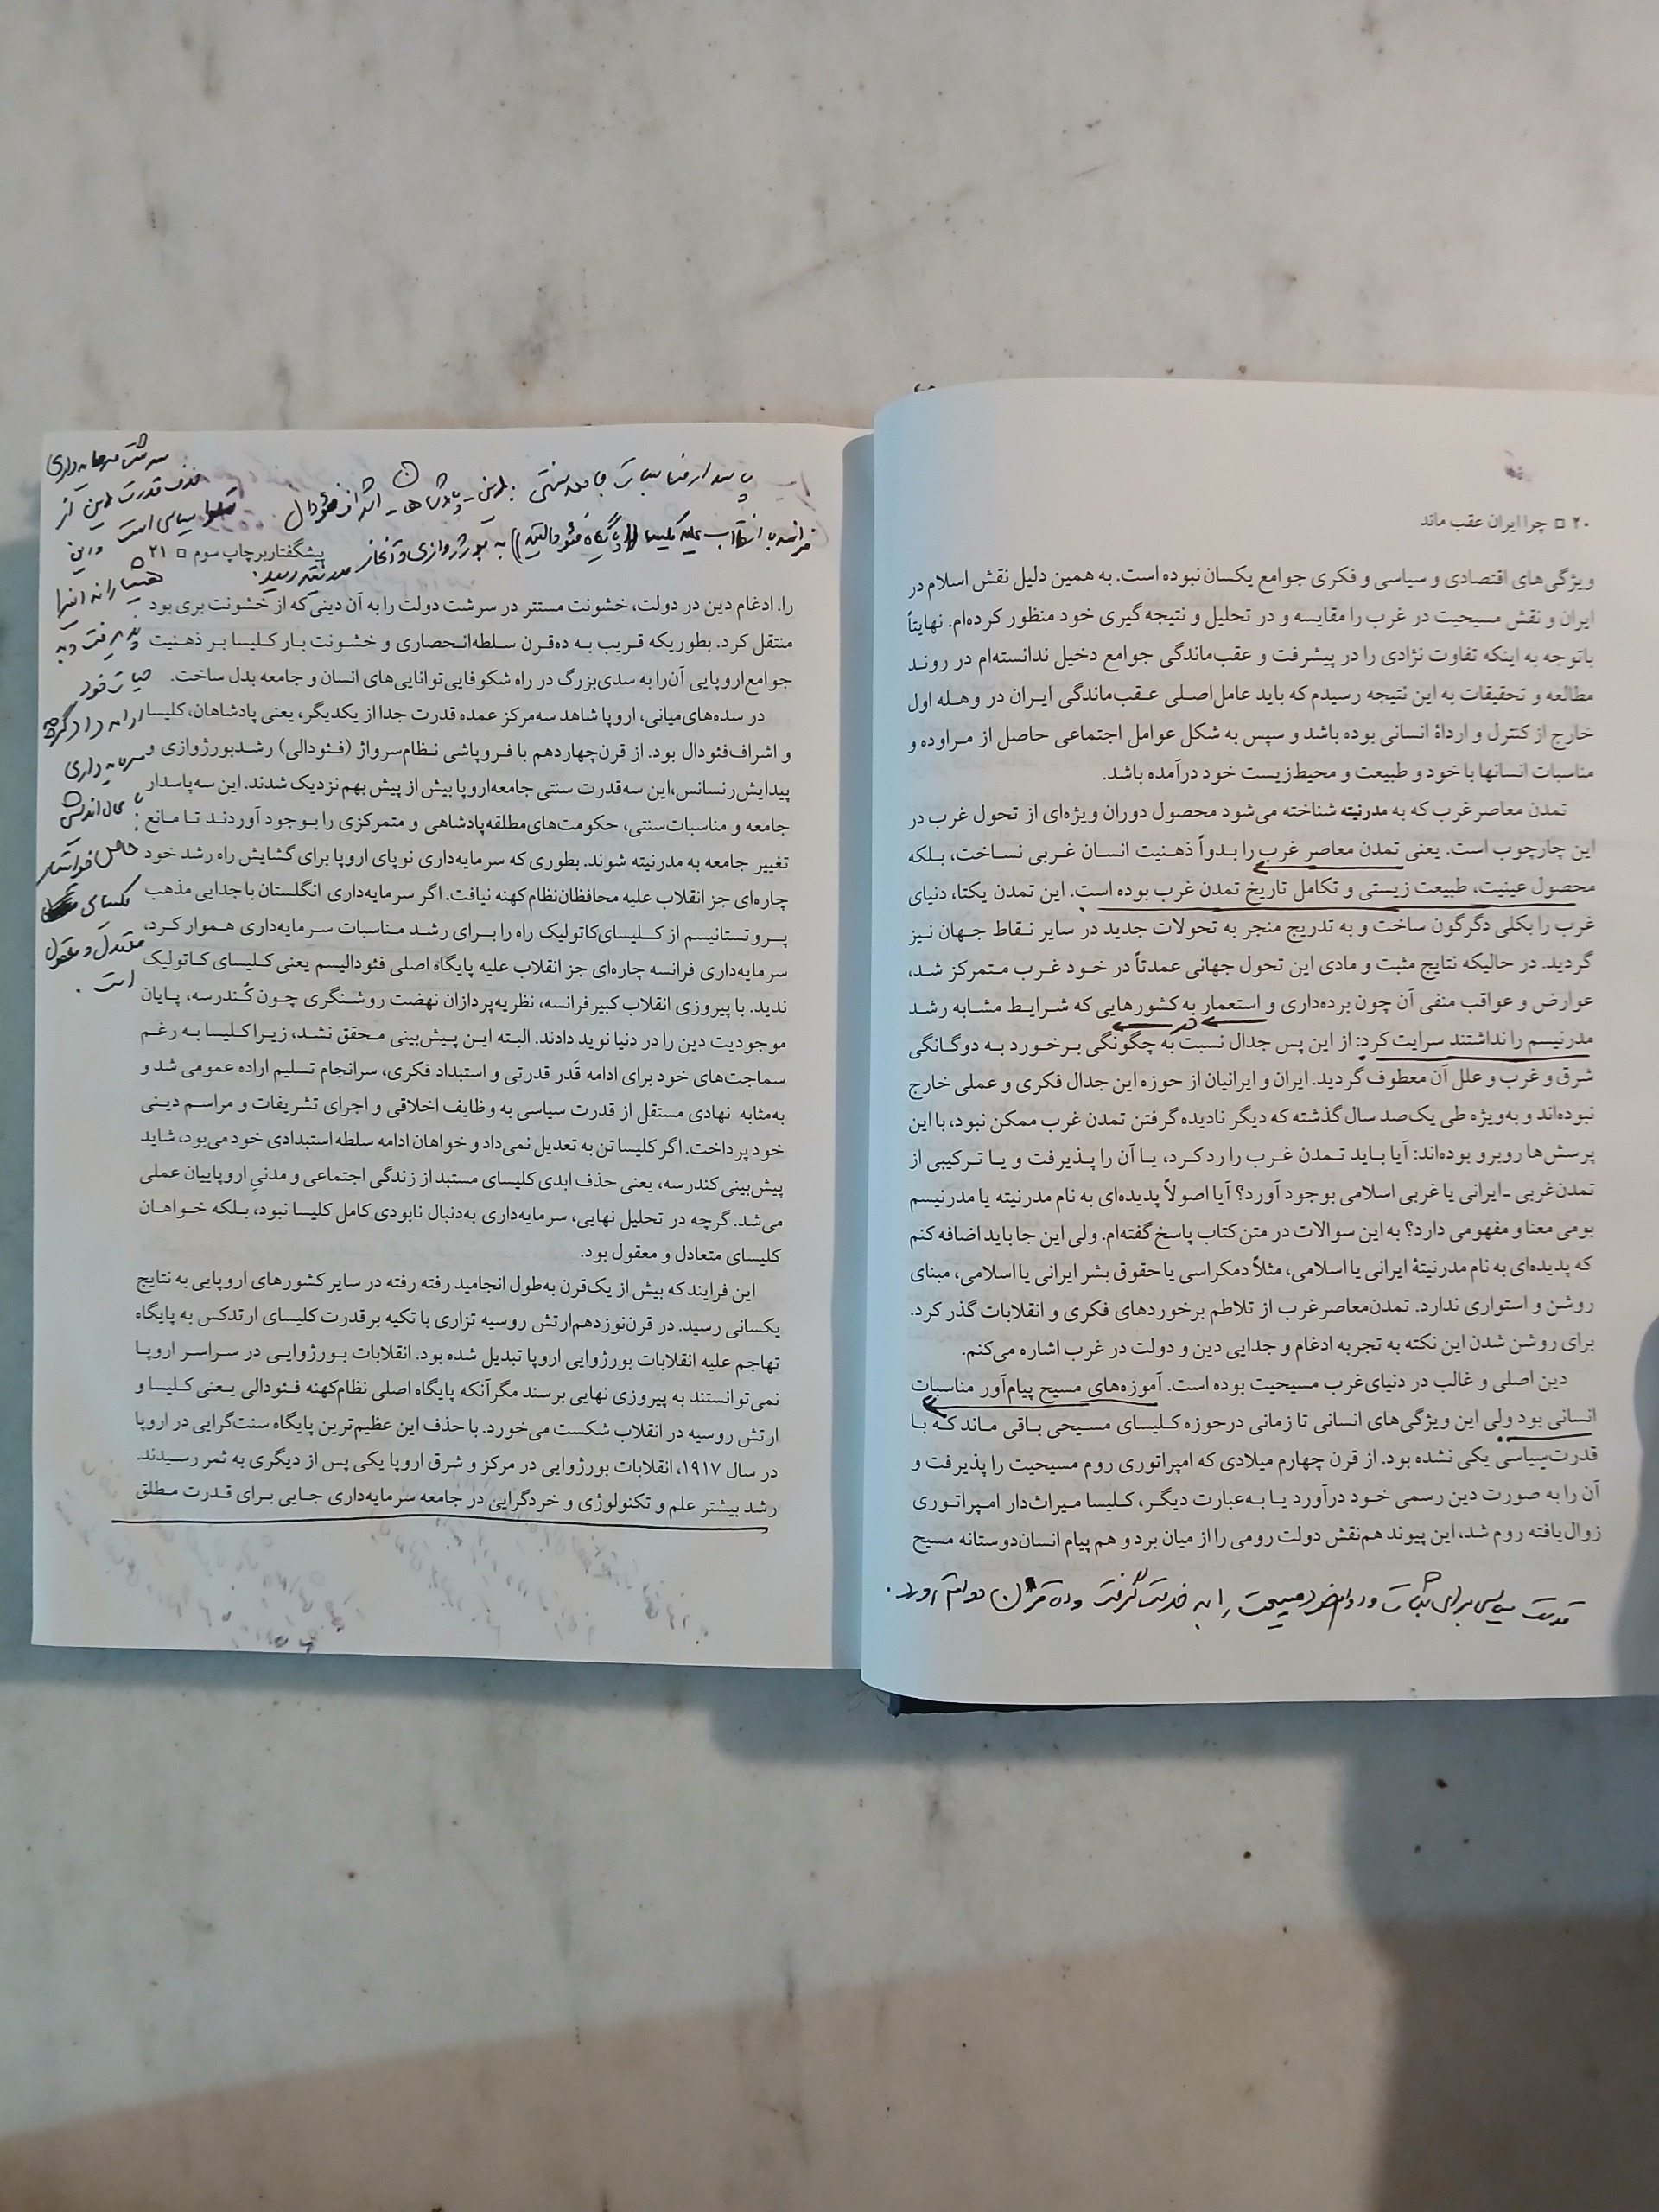 ۲۰ □ چرا ایران عقب ماند
ویژگی‌های اقتصادی و سیاسی و فکری جوامع یکسان نبوده است. به همین دلیل نقش اسلام در
ایران و نقش مسیحیت در غرب را مقایسه و در تحلیل و نتیجه گیری خود منظور کرده‌ام. نهایتاً
باتوجه به اینکه تفاوت نژادی را در پیشرفت و عقب‌ماندگی جوامع دخیل ندانسته‌ام در روند
مطالعه و تحقیقات به این نتیجه رسیدم که باید عامل‌اصلی عقب‌ماندگی ایران در وهله اول
خارج از کنترل و ارداهٔ انسانی بوده باشد و سپس به شکل عوامل اجتماعی حاصل از مراوده و
مناسبات انسانها با خود و طبیعت و محیط‌زیست خود درآمده باشد.
تمدن معاصر غرب که به مدرنیته شناخته می‌شود محصول دوران ویژه‌ای از تحول غرب در
این چارچوب است. یعنی تمدن معاصر غرب را بدواً ذهنیت انسان غربی نساخت، بلکه
محصول عینیت، طبیعت زیستی و تکامل تاریخ تمدن غرب بوده است. این تمدن یکتا، دنیای
غرب را بکلی دگرگون ساخت و به تدریج منجر به تحولات جدید در سایر نقاط جهان نیز
گردید. در حالیکه نتایج مثبت و مادی این تحول جهانی عمدتاً در خود غرب متمرکز شد،
عوارض و عواقب منفی آن چون برده‌داری و استعمار به کشورهایی که شرایط مشابه رشد
مدرنیسم را نداشتند سرایت کرد: از این پس جدال نسبت به چگونگی برخورد به دوگانگی
شرق و غرب و علل آن معطوف گردید. ایران و ایرانیان از حوزه این جدال فکری و عملی خارج
نبوده‌اند و به‌ویژه طی یک‌صد سال گذشته که دیگر نادیده گرفتن تمدن غرب ممکن نبود، با این
پرسش‌ها روبرو بوده‌اند: آیا باید تمدن غرب را رد کرد، یا آن را پذیرفت و یا ترکیبی از
تمدن‌غربی -ایرانی یا غربی اسلامی بوجود آورد؟ آیا اصولاً پدیده‌ای به نام مدرنیته یا مدرنیسم
بومی معنا و مفهومی دارد؟ به این سوالات در متن کتاب پاسخ گفته‌ام. ولی این جا باید اضافه کنم
که پدیده‌ای به نام مدرنیتهٔ ایرانی یا اسلامی، مثلاً دمکراسی یا حقوق بشر ایرانی یا اسلامی، مبنای
روشن و استواری ندارد. تمدن‌معاصر غرب از تلاطم برخوردهای فکری و انقلابات گذر کرد.
برای روشن شدن این نکته به تجربه ادغام و جدایی دین و دولت در غرب اشاره می‌کنم.
دین اصلی و غالب در دنیای‌غرب مسیحیت بوده است. آموزه‌های مسیح پیام‌آور مناسبات
انسانی بود ولی این ویژگی‌های انسانی تا زمانی درحوزه کلیسای مسیحی باقی ماند که با
قدرت‌سیاسی یکی نشده بود. از قرن چهارم میلادی که امپراتوری روم مسیحیت را پذیرفت و
آن را به صورت دین رسمی خود درآورد یا به‌عبارت دیگر، کلیسا میراث‌دار امپراتوری
زوال‌یافته روم شد، این پیوند هم‌نقش دولت رومی را از میان برد و هم پیام انسان‌دوستانه مسیح
قدرت سیاسی برای ثبات و دوام خود مسیحیت را به خدمت گرفت و ده قرن دوام آورد.
پاسدار مناسبات جامعه سنتی: دین - پادشاهان - اشراف فئودال
فرانسه با انقلاب علیه کلیسا ((پایگاه فئودالیته)) به بورژوازی و آغاز مدرنیته رسید.
پیشگفتار بر چاپ سوم □ ۲۱
را. ادغام دین در دولت، خشونت مستتر در سرشت دولت را به آن دینی‌که از خشونت بری بود
منتقل کرد. بطوریکه قریب به ده‌قرن سلطه‌انحصاری و خشونت بار کلیسا بر ذهنیت
جوامع‌اروپایی آن‌را به سدی‌بزرگ در راه شکوفایی‌توانایی‌های انسان و جامعه بدل ساخت.
در سده‌های‌میانی، اروپا شاهد سه‌مرکز عمده قدرت جدا از یکدیگر، یعنی پادشاهان، کلیسا
و اشراف‌فئودال بود. از قرن‌چهاردهم با فروپاشی نظام‌سرواژ (فئودالی) رشدبورژوازی و
پیدایش‌رنسانس،این سه‌قدرت سنتی جامعه‌اروپا بیش از پیش بهم نزدیک شدند. این سه‌پاسدار
جامعه و مناسبات‌سنتی، حکومت‌های‌مطلقه‌پادشاهی و متمرکزی را بوجود آوردند تا مانع
تغییر جامعه به مدرنیته شوند. بطوری که سرمایه‌داری نوپای اروپا برای گشایش راه رشد خود
چاره‌ای جز انقلاب علیه محافظان‌نظام‌کهنه نیافت. اگر سرمایه‌داری انگلستان با جدایی مذهب
پروتستانیسم از کلیسای‌کاتولیک راه را برای رشد مناسبات سرمایه‌داری هموار کرد،
سرمایه‌داری فرانسه چاره‌ای جز انقلاب علیه پایگاه اصلی فئودالیسم یعنی کلیسای کاتولیک
ندید. با پیروزی انقلاب کبیرفرانسه، نظریه‌پردازان نهضت روشنگری چون کُندرسه، پایان
موجودیت دین را در دنیا نوید دادند. البته این پیش‌بینی محقق نشد، زیرا کلیسا به رغم
سماجت‌های خود برای ادامه قَدر قدرتی و استبداد فکری، سرانجام تسلیم اراده عمومی شد و
به‌مثابه نهادی مستقل از قدرت سیاسی به وظایف اخلاقی و اجرای تشریفات و مراسم دینی
خود پرداخت. اگر کلیسا تن به تعدیل نمی‌داد و خواهان ادامه سلطه استبدادی خود می‌بود، شاید
پیش‌بینی کندرسه، یعنی حذف ابدی کلیسای مستبد از زندگی اجتماعی و مدنیِ اروپاییان عملی
می‌شد. گرچه در تحلیل نهایی، سرمایه‌داری به‌دنبال نابودی کامل کلیسا نبود، بلکه خواهان
کلیسای متعادل و معقول بود.
این فرایند که بیش از یک‌قرن به‌طول انجامید رفته رفته در سایر کشورهای اروپایی به نتایج
یکسانی رسید. در قرن‌نوزدهم‌ارتش روسیه تزاری با تکیه برقدرت کلیسای ارتدکس به پایگاه
تهاجم علیه انقلابات بورژوایی اروپا تبدیل شده بود. انقلابات بورژوایی در سراسر اروپا
نمی‌توانستند به پیروزی نهایی برسند مگرآنکه پایگاه اصلی نظام‌کهنه فئودالی یعنی کلیسا و
ارتش روسیه در انقلاب شکست می‌خورد. با حذف این عظیم‌ترین پایگاه سنت‌گرایی در اروپا
در سال ۱۹۱۷، انقلابات بورژوایی در مرکز و شرق اروپا یکی پس از دیگری به ثمر رسیدند.
رشد بیشتر علم و تکنولوژی و خردگرایی در جامعه سرمایه‌داری جایی برای قدرت مطلق
سرشت سرمایه‌داری
حذف قدرت دین از
سیاسی است و دین
هشیارانه این را
پذیرفت و به
حیات خود
ادامه داد گرچه
سرمایه داری
با مال اندیشی
خواستار
کلیسای
متعادل و معقول
است.